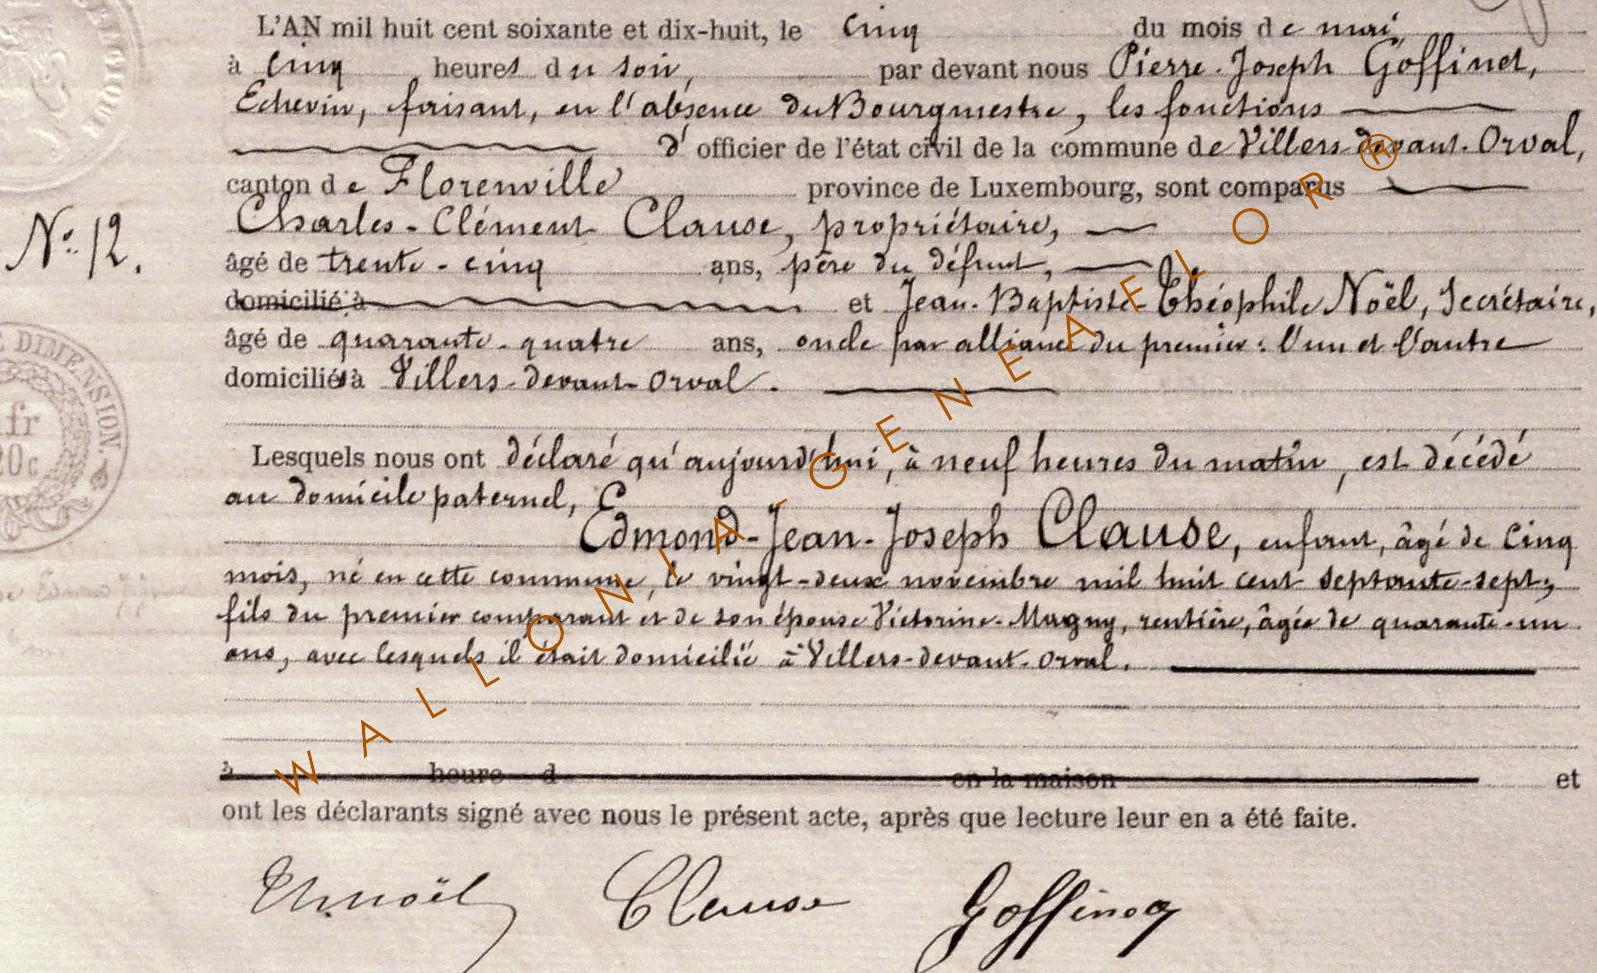 L'AN mil huit cent soixante et dix-huit, le cinq du mois de mai,
à cinq heures du soir, par devant nous Pierre-Joseph Goffinet,
Echevin, faisant, en l'absence du Bourgmestre, les fonctions
d'officier de l'état civil de la commune de Villers-devant-Orval,
canton de Florenville province de Luxembourg, sont comparus
N° 12. Charles-Clément Clause, propriétaire,
âgé de trente-cinq ans, père du défunt,
domicilié à et Jean-Baptiste-Théophile Noël, Secrétaire,
âgé de quarante-quatre ans, oncle par alliance du premier: l'un et l'autre
domiciliés à Villers-devant-Orval.
Lesquels nous ont déclaré qu'aujourd'hui, à neuf heures du matin, est décédé
au domicile paternel,
Edmond-Jean-Joseph Clause, enfant, âgé de cinq
mois, né en cette commune, le vingt-deux novembre mil huit cent septante-sept;
fils du premier comparant et de son épouse Victorine Magny, rentière, âgée de quarante-un
ans, avec lesquels il était domicilié à Villers-devant-Orval.
à heure d en la maison et
ont les déclarants signé avec nous le présent acte, après que lecture leur en a été faite.
Th. Noël Clause Goffinet
E DIMENSION.
fr
20c
WALLONIA-GENEAFLOR®